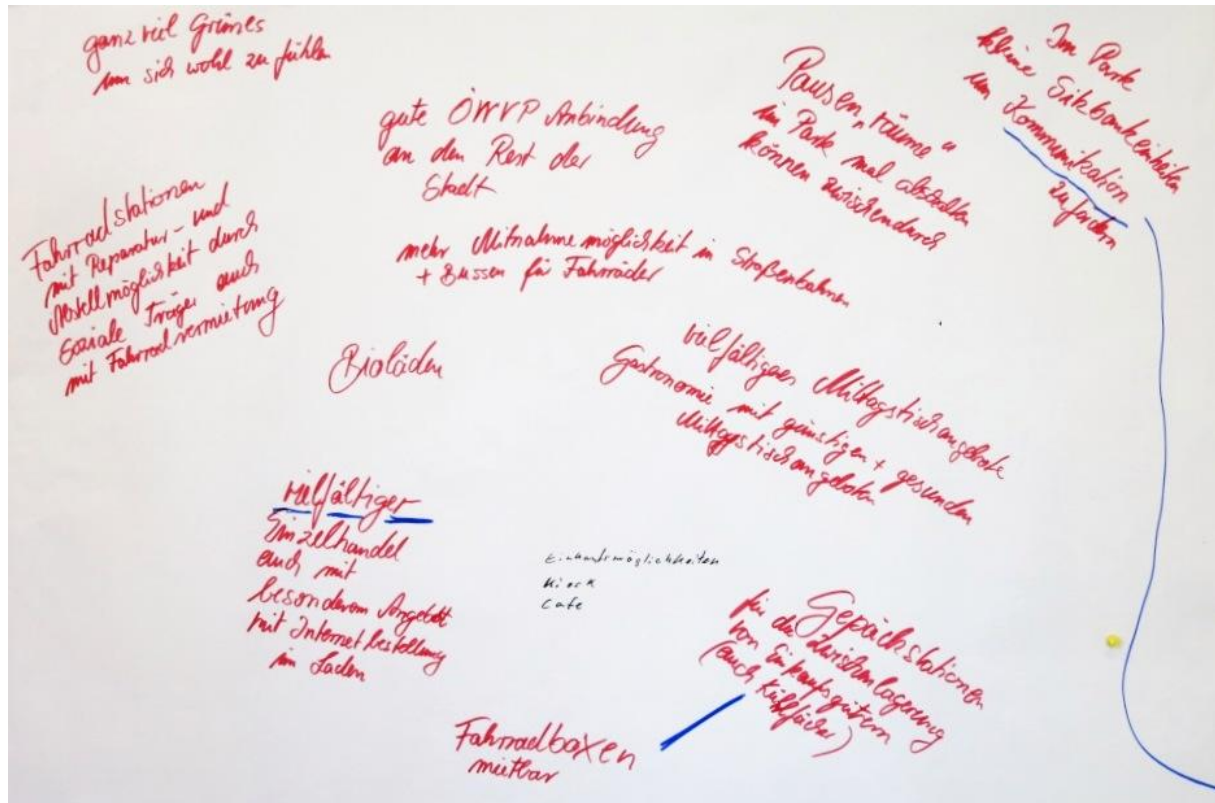 ganz viel Grünes
um sich wohl zu fühlen
gute ÖVVP Anbindung
an den Rest der
Stadt
Pausen„räume“
im Park mal abschalten
können zwischendurch
Im Park
kleine Sitzbankeinheiten
um Kommunikation
zu fördern
Fahrradstationen
mit Reparatur- und
Abstellmöglichkeit durch
soziale Träger auch
mit Fahrradvermietung
mehr Mitnahmemöglichkeit in Straßenbahnen
+ Bussen für Fahrräder
Bioläden
vielfältigere Mittagstischangebote
Gastronomie mit günstigen + gesunden
Mittagstischangeboten
vielfältiger
Einzelhandel
auch mit
besonderem Angebot
mit Internetbestellung
im Laden
Einkaufsmöglichkeiten
Kiosk
Cafe
Gepäckstationen
für die Zwischenlagerung
von Einkaufsgütern
(auch Kühlfächer)
Fahrradboxen
mietbar